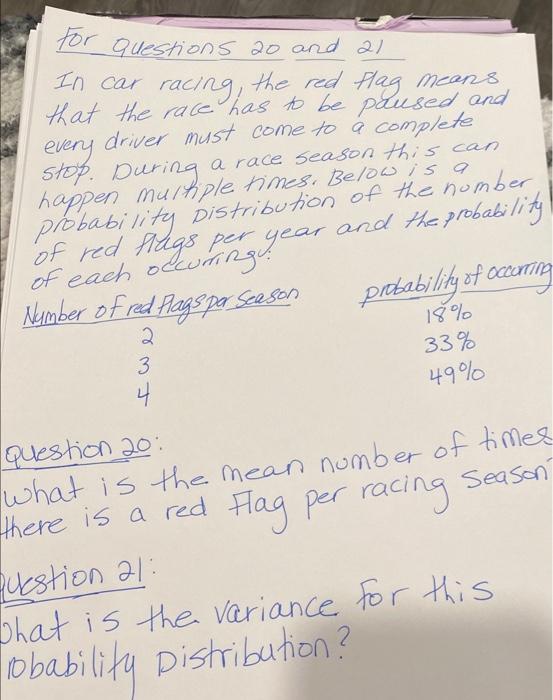 For Questions 20 and 21
In car racing, the red flag means
that the race has to be paused and
every driver must come to a complete
stop. During a race season this can
happen multiple times. Below is a
probability Distribution of the number
of red flags per year and the probability
of each occurring.
Number of red flags per season probability of occurring
2 18%
3 33%
4 49%
Question 20:
What is the mean number of times
there is a red flag per racing season
Question 21:
What is the variance for this
robability Distribution?